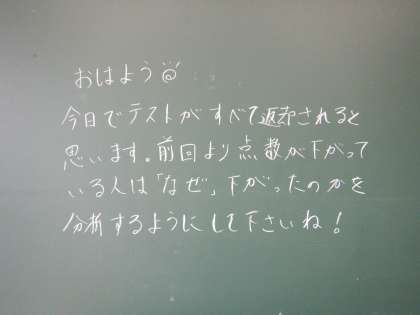 おはよう
今日でテストがすべて返却されると
思います。前回より点数が下がって
いる人は「なぜ」下がったのかを
分析するようにして下さいね!